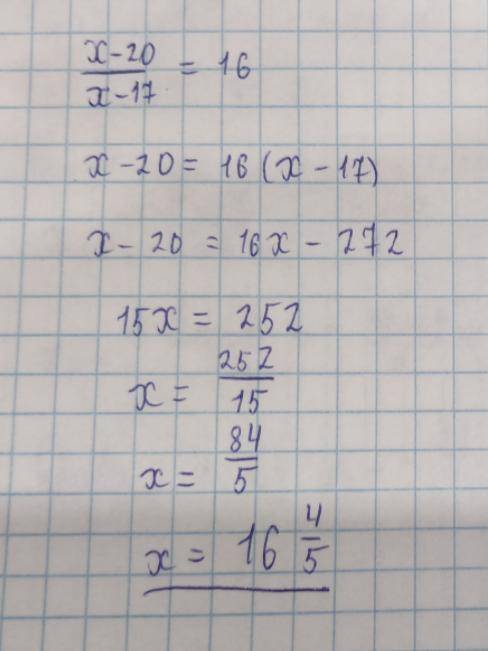 x-20/x-17 = 16
x-20 = 16(x-17)
x-20 = 16x-272
15x = 252
x = 252/15
x = 84/5
x = 16 4/5